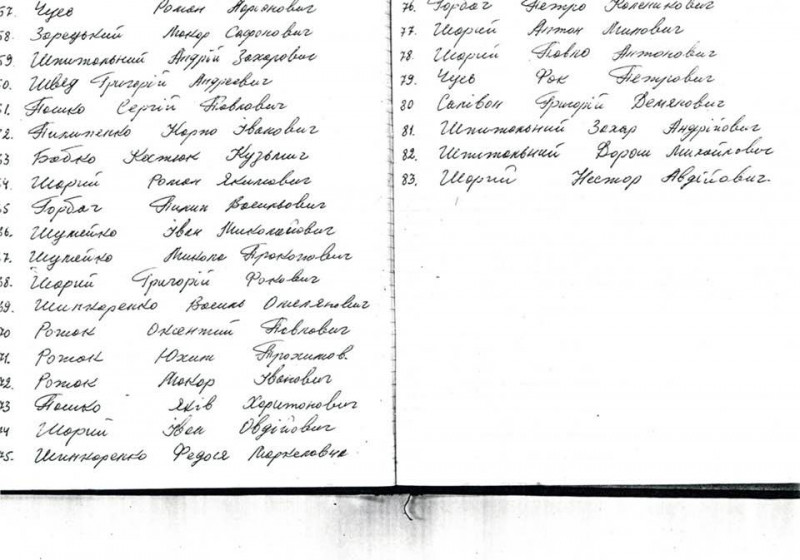 57. Чуєс Роман Адріянович
58. Зарецький Макар Сафонович
59. Шпитальний Андрій Захарович
60. Швед Григорій Андреєвич
61. Пошко Сергій Павлович
62. Пилипенко Карпо Іванович
63 Бабко Костюк Кузьмич
64 Шарий Роман Якимович
65 Горбач Пилип Васильович
66 Шумейко Іван Миколайович
67. Шумейко Микола Прокопович
68. Шарий Григорій Фокович
69. Шинкаренко Василь Омелянович
70 Рожок Оксентий Павлович
71. Рожок Юхим Прохимов.
72. Рожок Макар Іванович
73 Пошко Яків Харитонович
74 Шарий Іван Овдійович
75. Шинкаренко Федося Маркеловна
76. Горбач Петро Каленикович
77. Шарий Антон Милович
78. Шарий Павло Антонович
79. Чуєс Фок Петрович
80 Салівон Григорій Демянович
81. Шпитальний Захар Андрійович
82. Шпитальний Дорош Михайлович
83. Шарий Нестор Авдійович.